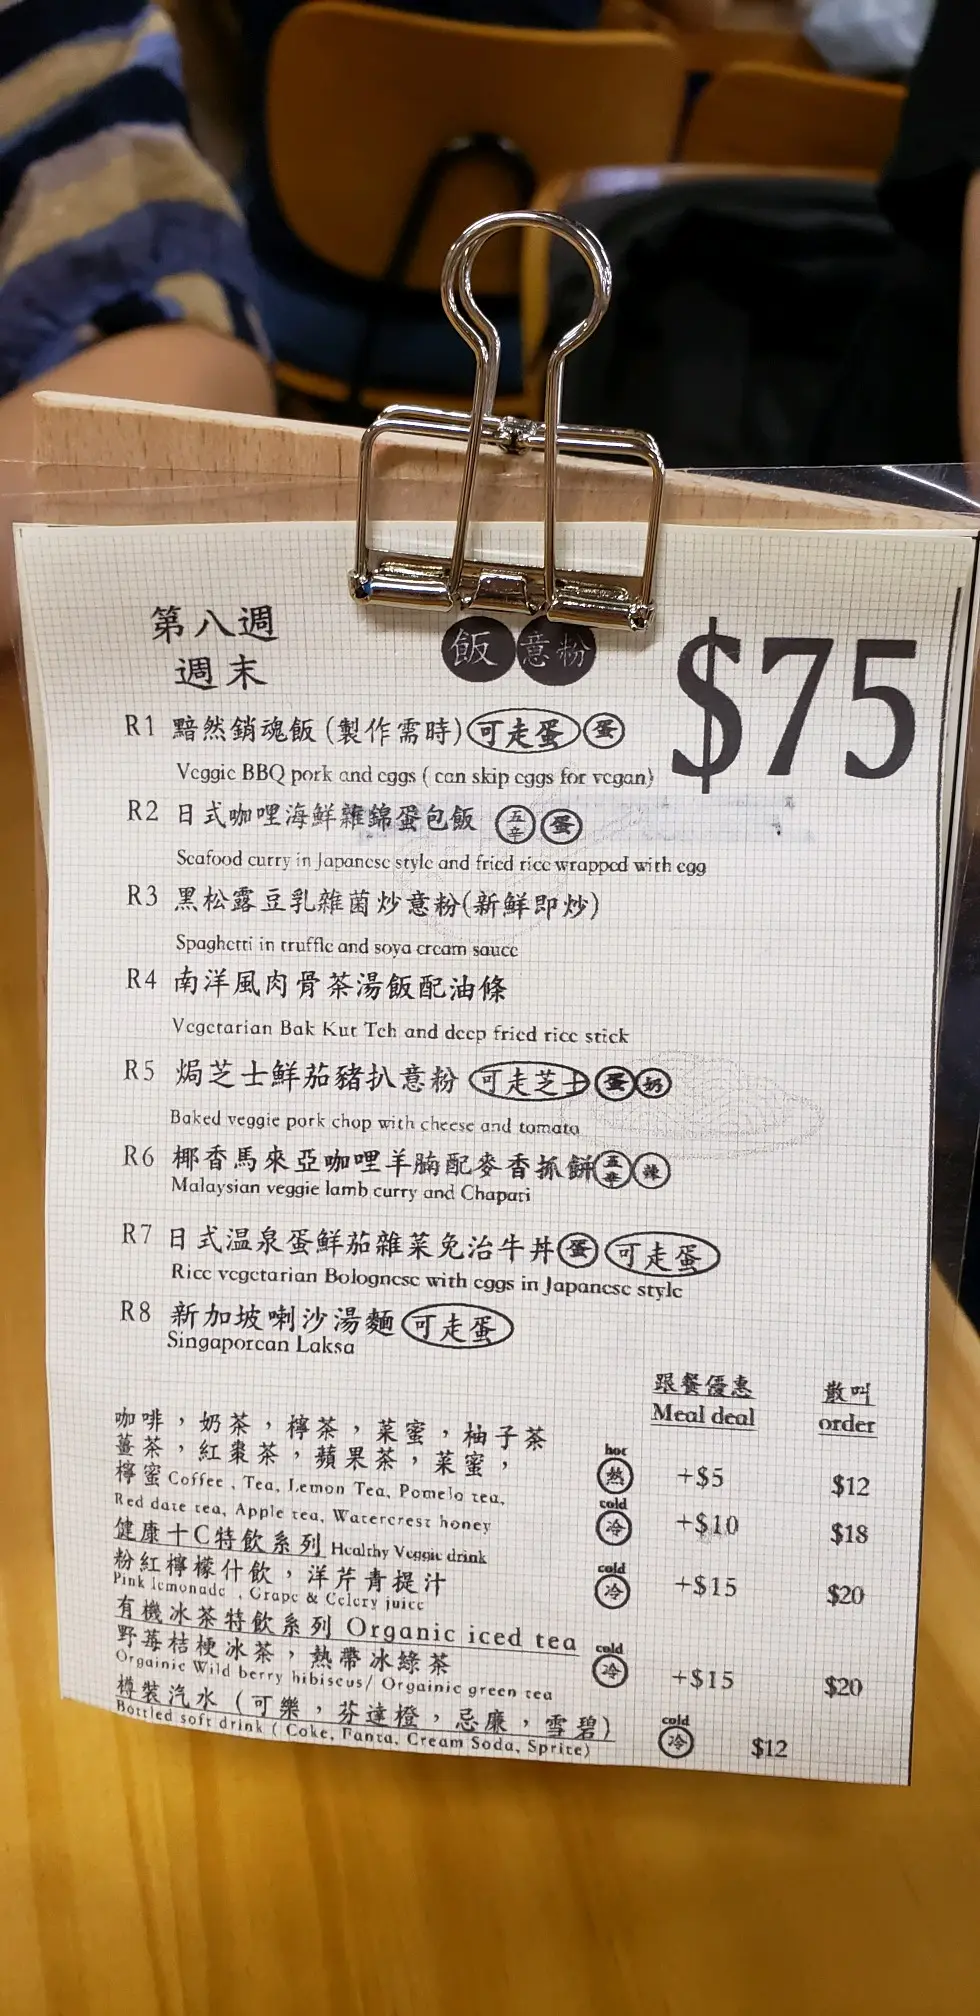 第八週
週末
飯 意粉
$75
R1 黯然銷魂飯 (製作需時) 可走蛋 蛋
Veggie BBQ pork and eggs ( can skip eggs for vegan)
R2 日式咖哩海鮮雜錦蛋包飯 五辛 蛋
Seafood curry in Japanese style and fried rice wrapped with egg
R3 黑松露豆乳雜菌炒意粉(新鮮即炒)
Spaghetti in truffle and soya cream sauce
R4 南洋風肉骨茶湯飯配油條
Vegetarian Bak Kut Teh and deep fried rice stick
R5 焗芝士鮮茄豬扒意粉 可走芝士 蛋 奶
Baked veggie pork chop with cheese and tomato
R6 椰香馬來亞咖哩羊腩配麥香抓餅 五辛 辣
Malaysian veggie lamb curry and Chapati
R7 日式溫泉蛋鮮茄雜菜免治牛丼 蛋 可走蛋
Rice vegetarian Bolognese with eggs in Japanese style
R8 新加坡喇沙湯麵 可走蛋
Singaporean Laksa
跟餐優惠 散叫
Meal deal order
咖啡，奶茶，檸茶，菜蜜，柚子茶
薑茶，紅棗茶，蘋果茶，菜蜜， hot 熱 +$5 $12
檸蜜 Coffee , Tea, Lemon Tea, Pomelo tea,
Red date tea, Apple tea, Watercrest honey cold 冷 +$10 $18
健康十C特飲系列 Healthy Veggie drink
粉紅檸檬什飲，洋芹青提汁 cold 冷 +$15 $20
Pink lemonade , Grape & Celery juice
有機冰茶特飲系列 Organic iced tea
野莓桔梗冰茶，熱帶冰綠茶 cold 冷 +$15 $20
Orgainic Wild berry hibiscus/ Orgainic green tea
樽裝汽水 (可樂，芬達橙，忌廉，雪碧) cold 冷 $12
Bottled soft drink ( Coke, Fanta, Cream Soda, Sprite)